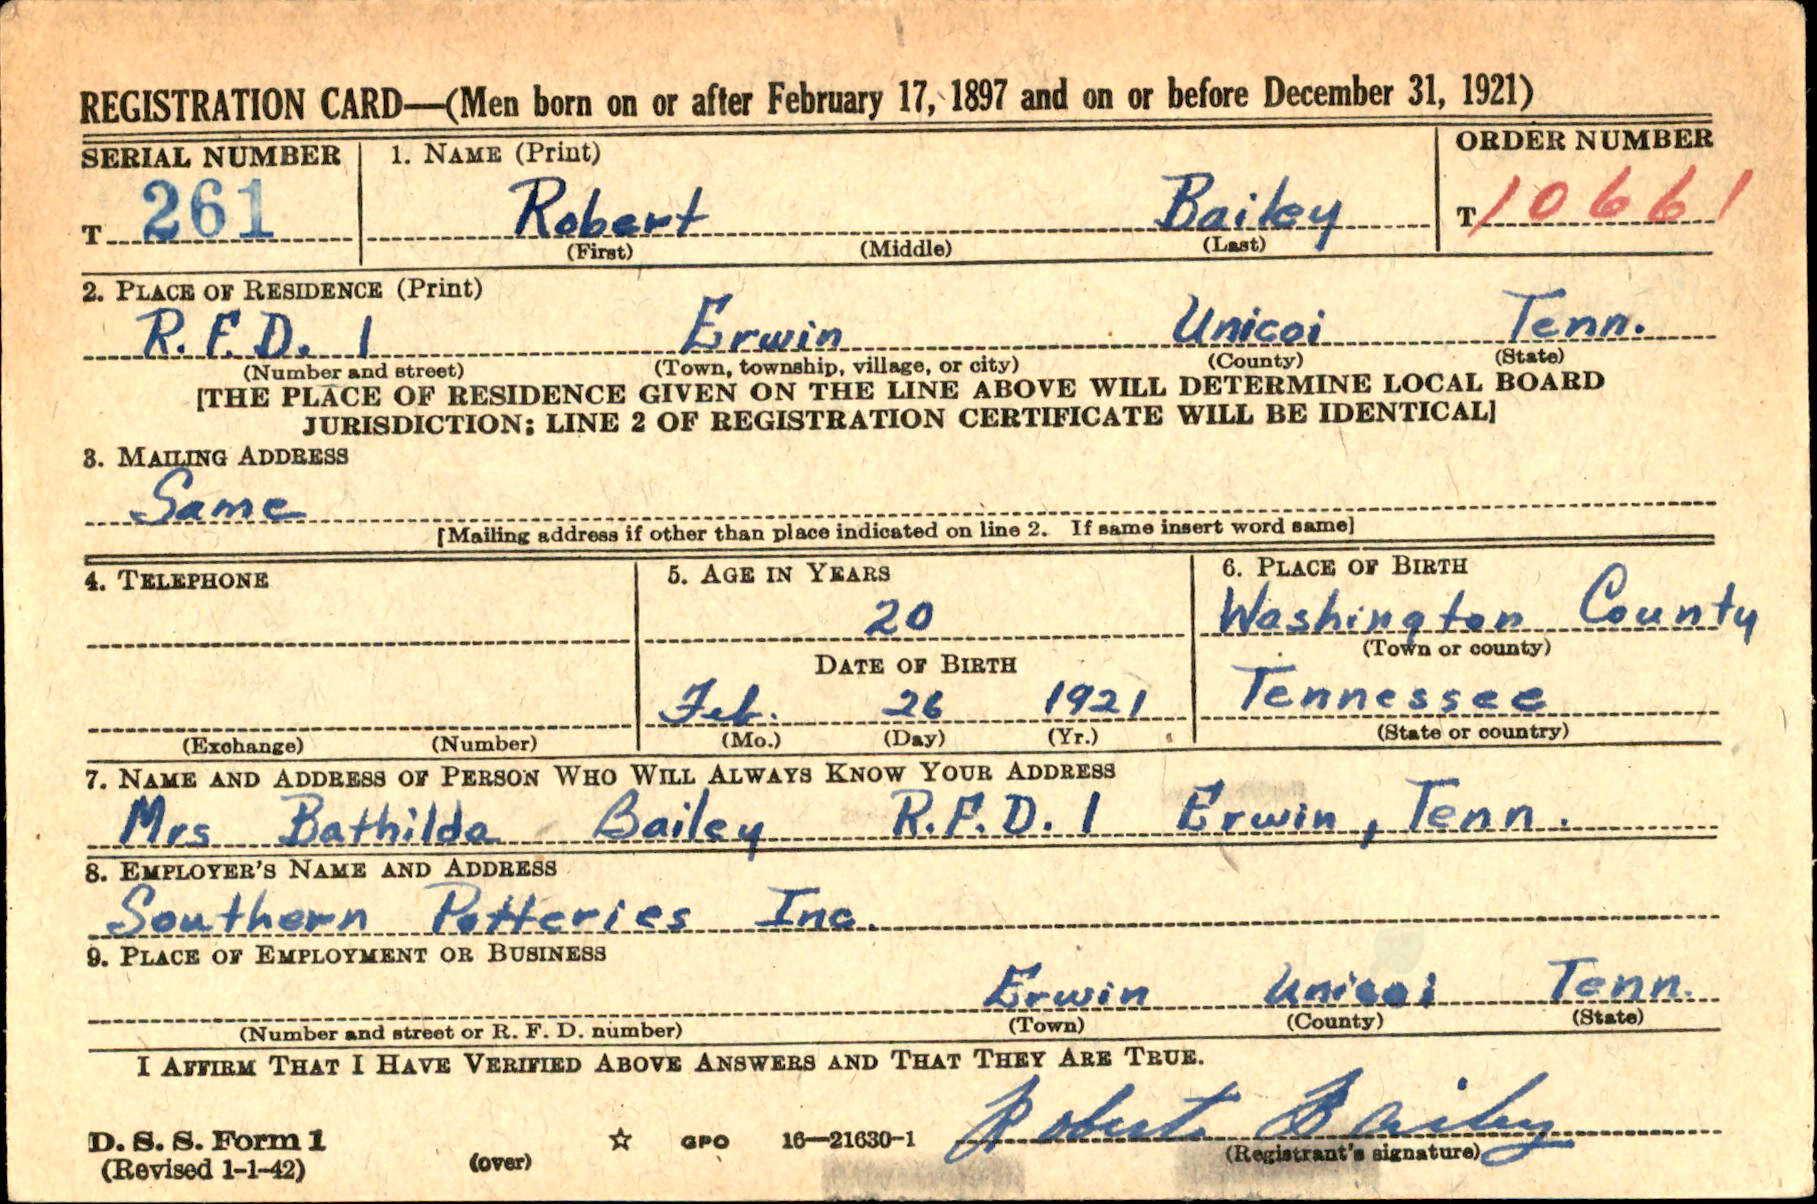 REGISTRATION CARD—(Men born on or after February 17, 1897 and on or before December 31, 1921)
SERIAL NUMBER
1. NAME (Print)
ORDER NUMBER
T 261
Robert Bailey
T 10661
(First) (Middle) (Last)
2. PLACE OF RESIDENCE (Print)
R. F. D. 1 Erwin Unicoi Tenn.
(Number and street) (Town, township, village, or city) (County) (State)
[THE PLACE OF RESIDENCE GIVEN ON THE LINE ABOVE WILL DETERMINE LOCAL BOARD
JURISDICTION; LINE 2 OF REGISTRATION CERTIFICATE WILL BE IDENTICAL]
3. MAILING ADDRESS
Same
[Mailing address if other than place indicated on line 2. If same insert word same]
4. TELEPHONE
(Exchange) (Number)
5. AGE IN YEARS
20
DATE OF BIRTH
Feb. 26 1921
(Mo.) (Day) (Yr.)
6. PLACE OF BIRTH
Washington County
(Town or county)
Tennessee
(State or country)
7. NAME AND ADDRESS OF PERSON WHO WILL ALWAYS KNOW YOUR ADDRESS
Mrs Bathilda Bailey R.F.D. 1 Erwin, Tenn.
8. EMPLOYER'S NAME AND ADDRESS
Southern Potteries Inc.
9. PLACE OF EMPLOYMENT OR BUSINESS
Erwin Unicoi Tenn.
(Number and street or R. F. D. number) (Town) (County) (State)
I AFFIRM THAT I HAVE VERIFIED ABOVE ANSWERS AND THAT THEY ARE TRUE.
Robert Bailey
(Registrant's signature)
D. S. S. Form 1
(Revised 1-1-42)
(over)
☆ GPO 16—21630-1